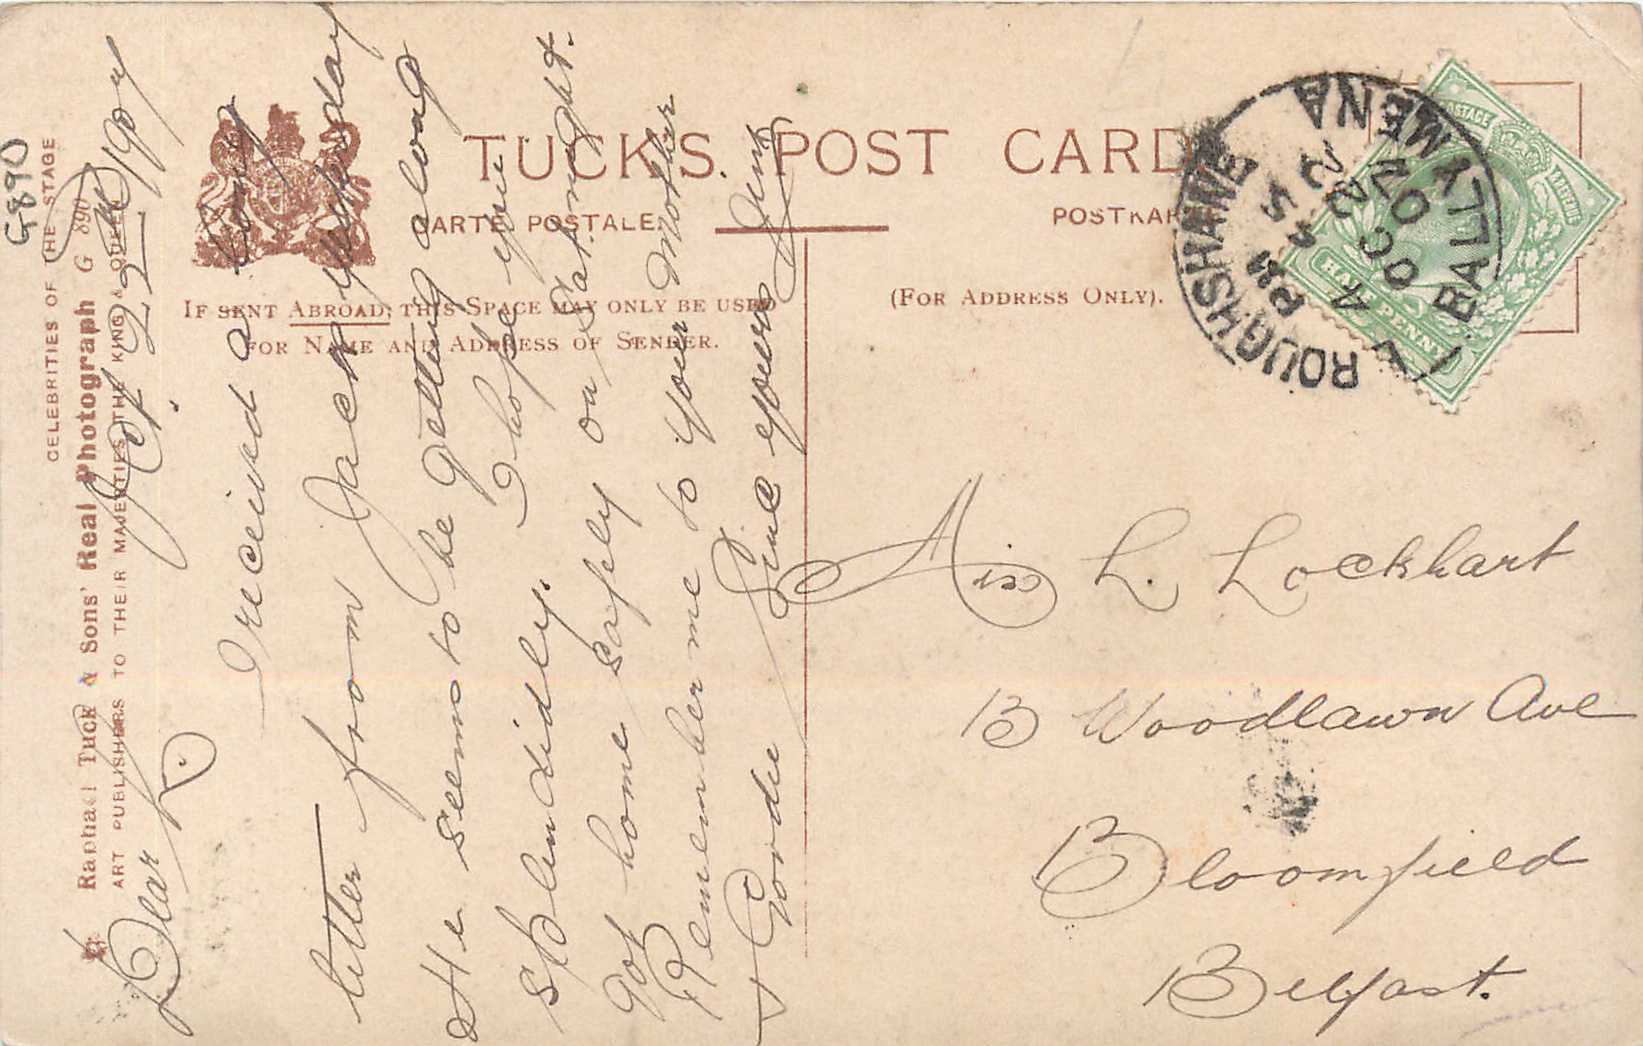 G890
CELEBRITIES OF THE STAGE
Raphael Tuck & Sons' Real Photograph G 890
ART PUBLISHERS TO THEIR MAJESTIES THE KING & QUEEN
TUCK'S POST CARD
CARTE POSTALE
POSTKARTE
IF SENT ABROAD, THIS SPACE MAY ONLY BE USED
FOR NAME AND ADDRESS OF SENDER.
(FOR ADDRESS ONLY).
Oct. 22nd/1907
Dear L
I received a long
letter from Jack yesterday
He seems to be getting along
splendidly. I hope you
got home safely on Sat. night.
Remember me to your Mother
& Gordie Sinc yours Jent
Miss L. Lockhart
13 Woodlawn Ave
Bloomfield
Belfast.
ROUGHSHANE
BALLYMENA
4 45 PM
OC 22
07
POSTAGE
REVENUE
HALFPENNY